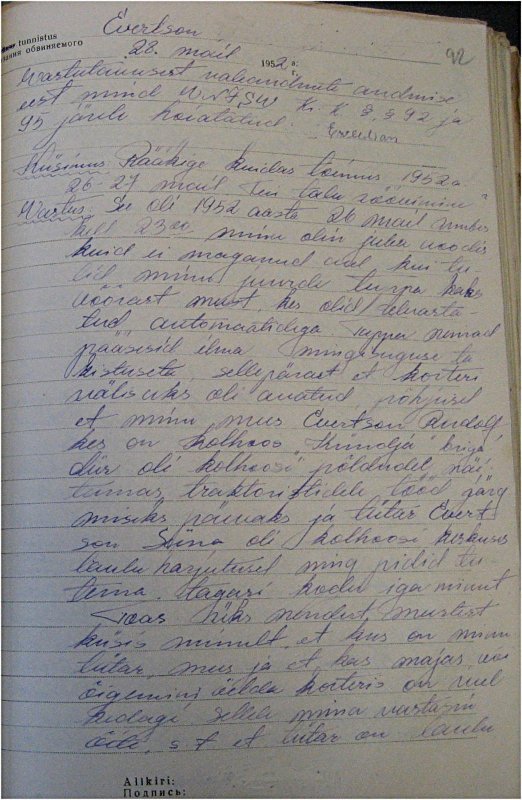 Evertson
tunnistus
28. mail 1952 a.
92
Vastutusest valeandmete andmise
eest mind VNFSV Kr. K. § § 92 ja
95 järele hoiatatud. Evertson
Küsimus: Rääkige kuidas toimus 1952 a.
26-27 mail teie talu röövimine
Vastus: See oli 1952 aasta 26 mail umbes
kell 23 00 mina olin juba voodis
kuid ei maganud veel kui tu-
lid minu juurde tuppa kaks
võõrast meest, kes olid relvasta
tud automaatidega tuppa nemad
pääsesid ilma mingisuguse ta
kistuseta, sellepärast et korteri
välisuks oli avatud põhjusel
et minu mees Evertson Rudolf,
kes on kolhoos "Kündja" briga
dir oli kolhoosi põldudel näi
tamas traktoristidele tööd järg
miseks päevaks ja tütar Evert
son Süna oli kolhoosi keskuses
laulu harjutusel ning pidid tu-
lema tagasi koju iga minut
Üks nendest meestest
küsis minult, et kus on minu
tütar, mees ja et kas majas või
õigemini öelda korteris on veel
kedagi, sellele mina vastasin
s.t et tütar on laulu
Allkiri:
Подпись: